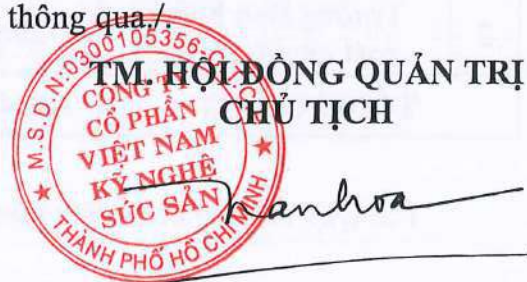 thông qua./.
TM. HỘI ĐỒNG QUẢN TRỊ
CHỦ TỊCH
M.S.D.N:0300105356-C.T.C.P
CÔNG TY
CỔ PHẦN
VIỆT NAM
KỸ NGHỆ
SÚC SẢN
THÀNH PHỐ HỒ CHÍ MINH